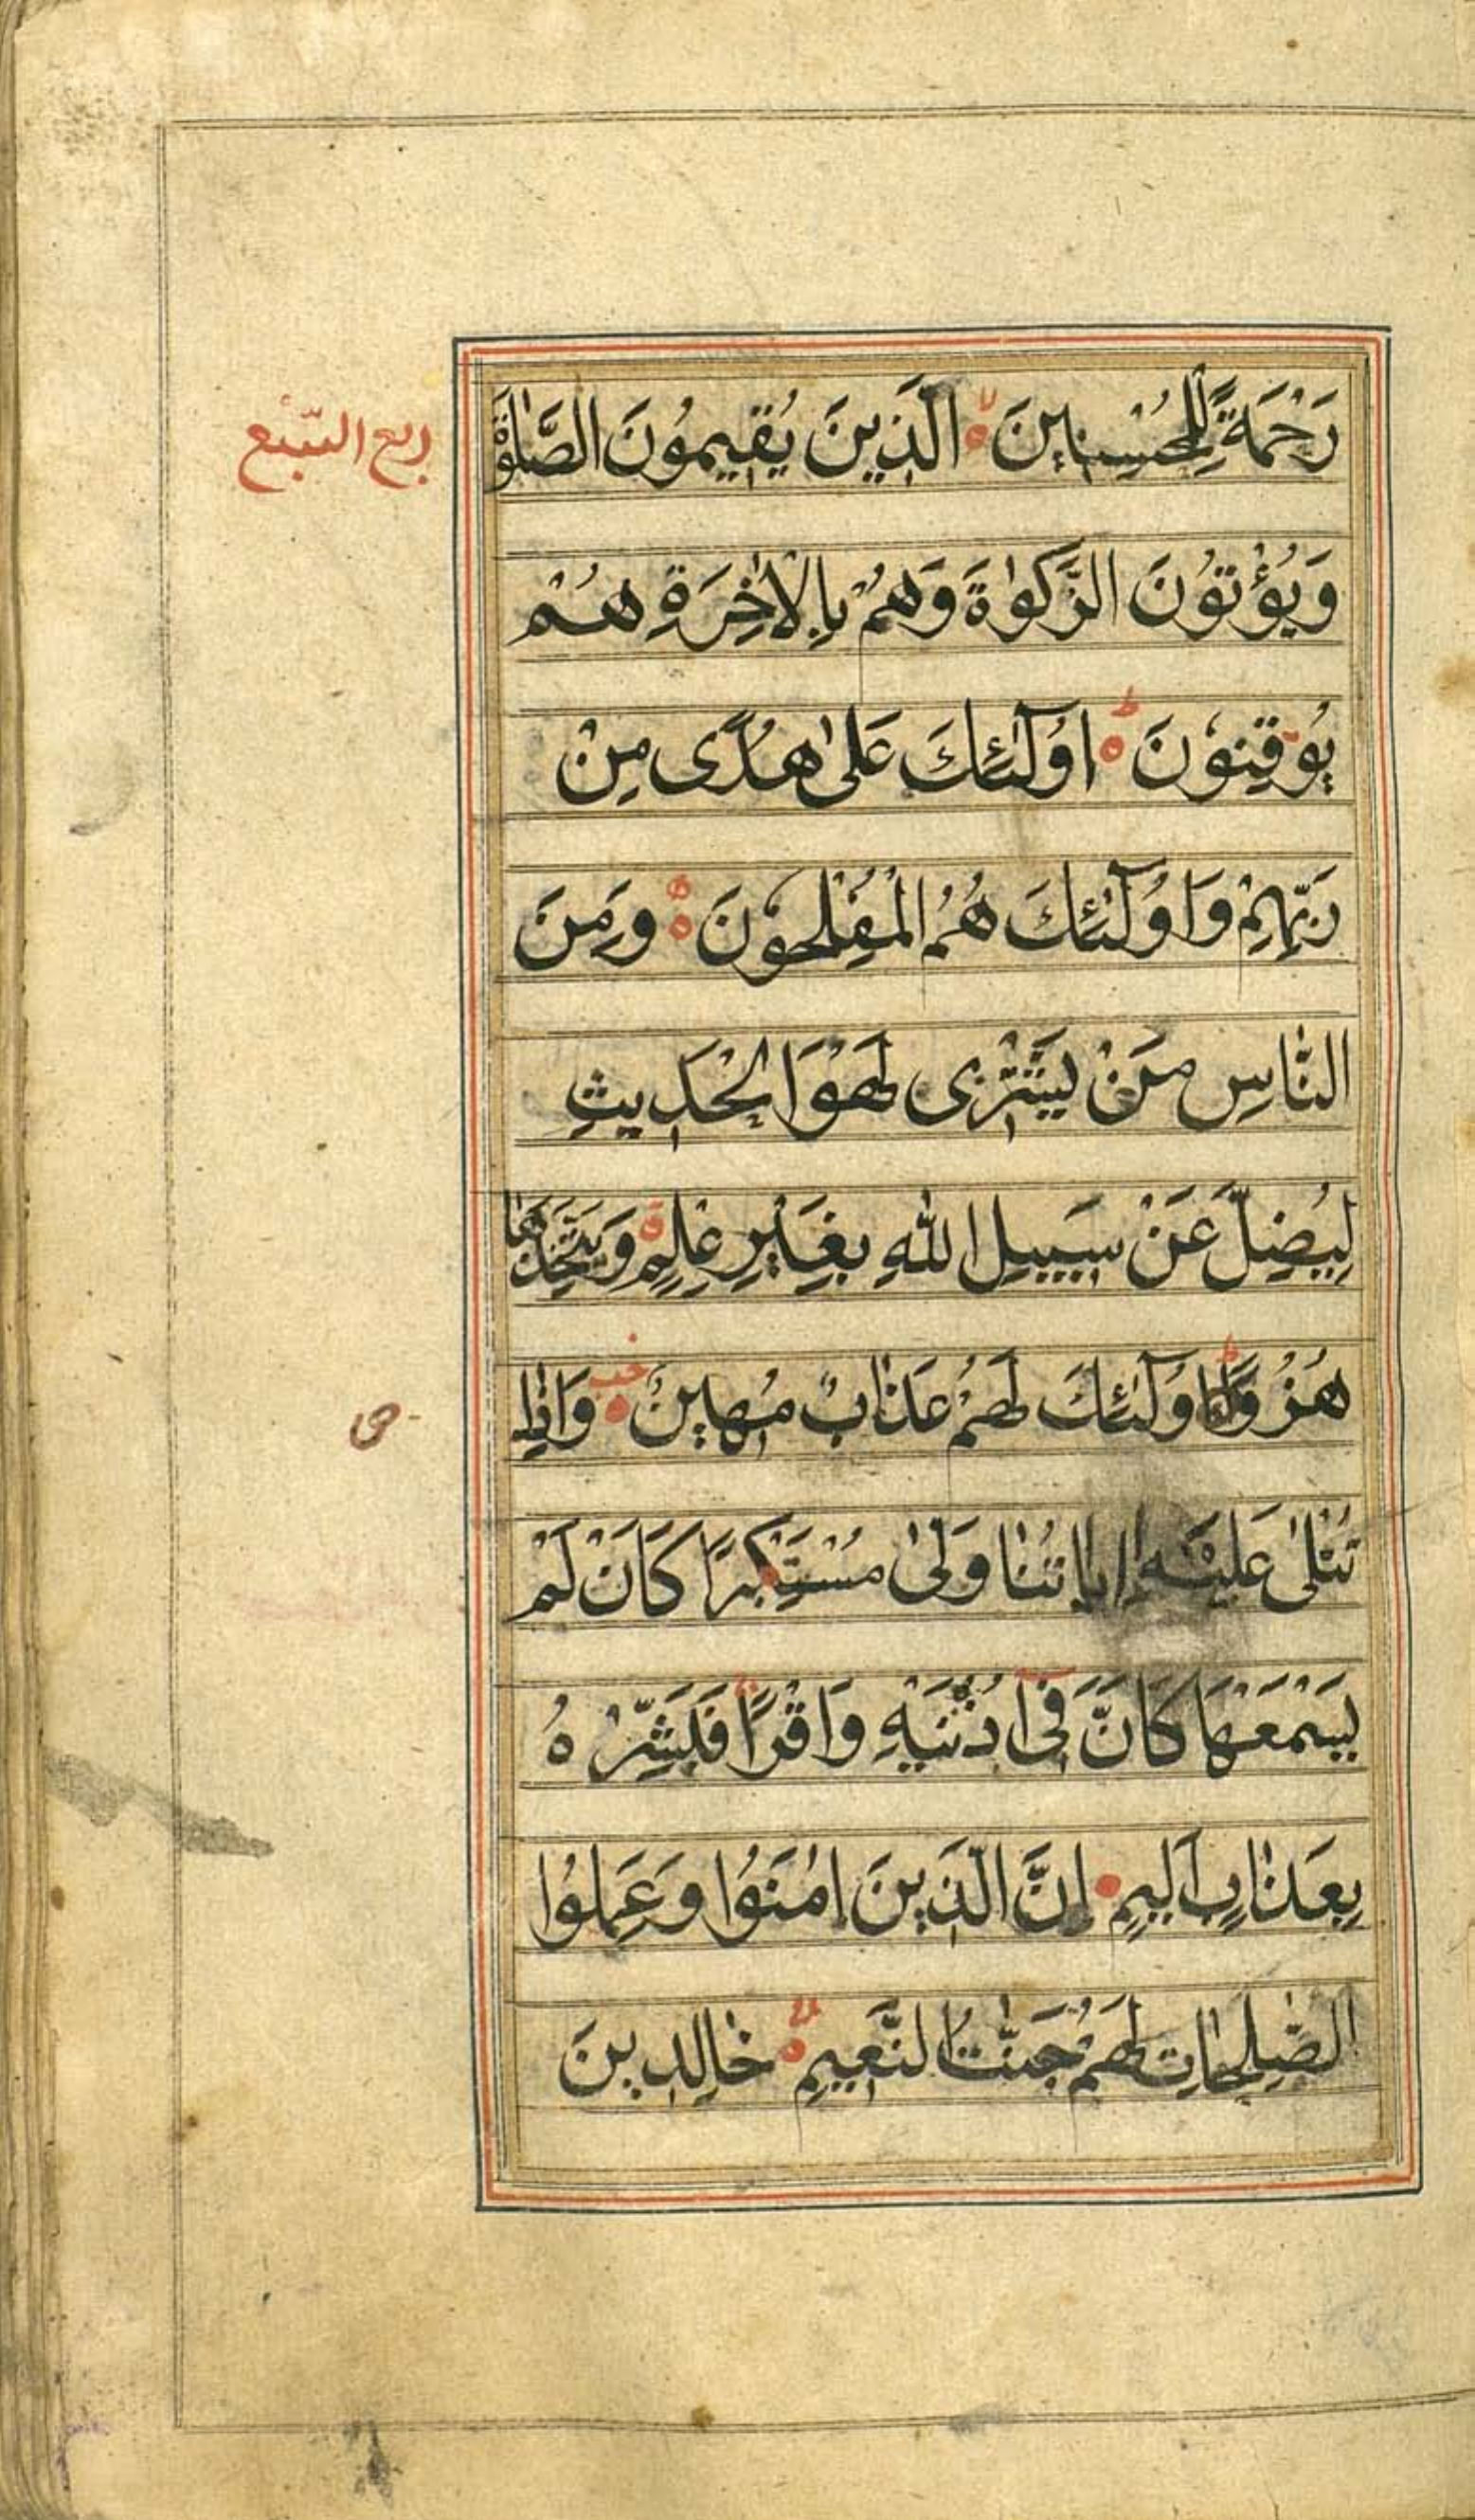 رَحْمَةً لِلْمُحْسِنِينَ ۙ الَّذِينَ يُقِيمُونَ الصَّلٰوةَ
ربع السّبُع
وَيُؤْتُونَ الزَّكٰوةَ وَهُمْ بِالْاٰخِرَةِ هُمْ
يُوقِنُونَ ۗ اُولٰٓئِكَ عَلٰى هُدًى مِنْ
رَبِّهِمْ وَاُولٰٓئِكَ هُمُ الْمُفْلِحُونَ وَمِنَ
النَّاسِ مَنْ يَشْتَرِى لَهْوَ الْحَدِيثِ
لِيُضِلَّ عَنْ سَبِيلِ اللّٰهِ بِغَيْرِ عِلْمٍ وَيَتَّخِذَهَا
هُزُوًا اُولٰٓئِكَ لَهُمْ عَذَابٌ مُهِينٌ وَاِذَا
تُتْلٰى عَلَيْهِ اٰيَاتُنَا وَلّٰى مُسْتَكْبِرًا كَاَنْ لَمْ
يَسْمَعْهَا كَاَنَّ فِى اُذُنَيْهِ وَقْرًا فَبَشِّرْهُ
بِعَذَابٍ اَلِيمٍ اِنَّ الَّذِينَ اٰمَنُوا وَعَمِلُوا
الصّٰلِحَاتِ لَهُمْ جَنَّاتُ النَّعِيمِ خَالِدِينَ